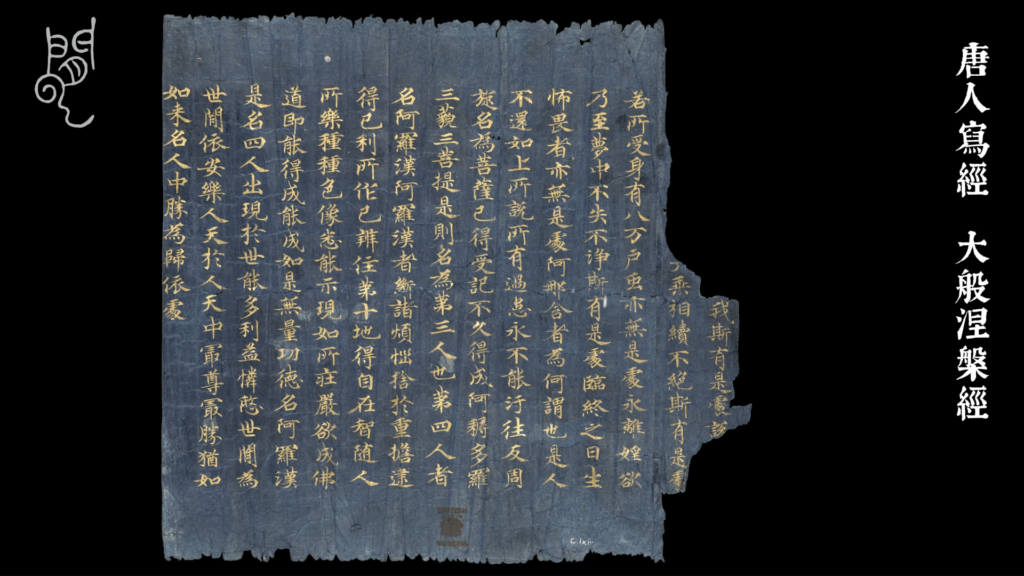 唐人寫經　大般涅槃經
我斯有是處說
相續不絕斯有是處
若所受身有八万戶虫亦無是處永離婬欲
乃至夢中不失不淨斯有是處臨終之日生
怖畏者亦無是處阿那含者為何謂也是人
不還如上所說所有過患永不能汙往反周
旋名為菩薩已得受記不久得成阿耨多羅
三藐三菩提是則名為第三人也第四人者
名阿羅漢阿羅漢者斷諸煩惱捨於重擔逮
得己利所作已辦住第十地得自在智隨人
所樂種種色像悉能示現如所莊嚴欲成佛
道即能得成能成如是無量功德名阿羅漢
是名四人出現於世能多利益憐愍世間為
世間依安樂人天於人天中最尊最勝猶如
如来名人中勝為歸依處